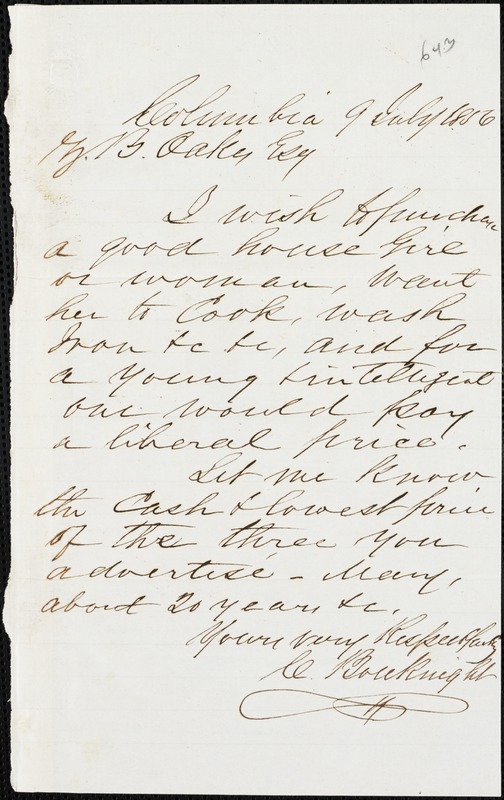 643
Columbia 9 July 1856
Z. B. Oakes Esq
I wish to purchase
a good house Girl
or woman, Want
her to Cook, wash
Iron &c &c, and for
a young & intelligent
one would pay
a liberal price.
Let me know
the Cash & lowest price
of the three you
advertise - Mary,
about 20 years, &c.
Yours very Respectfully
C. Bouknight